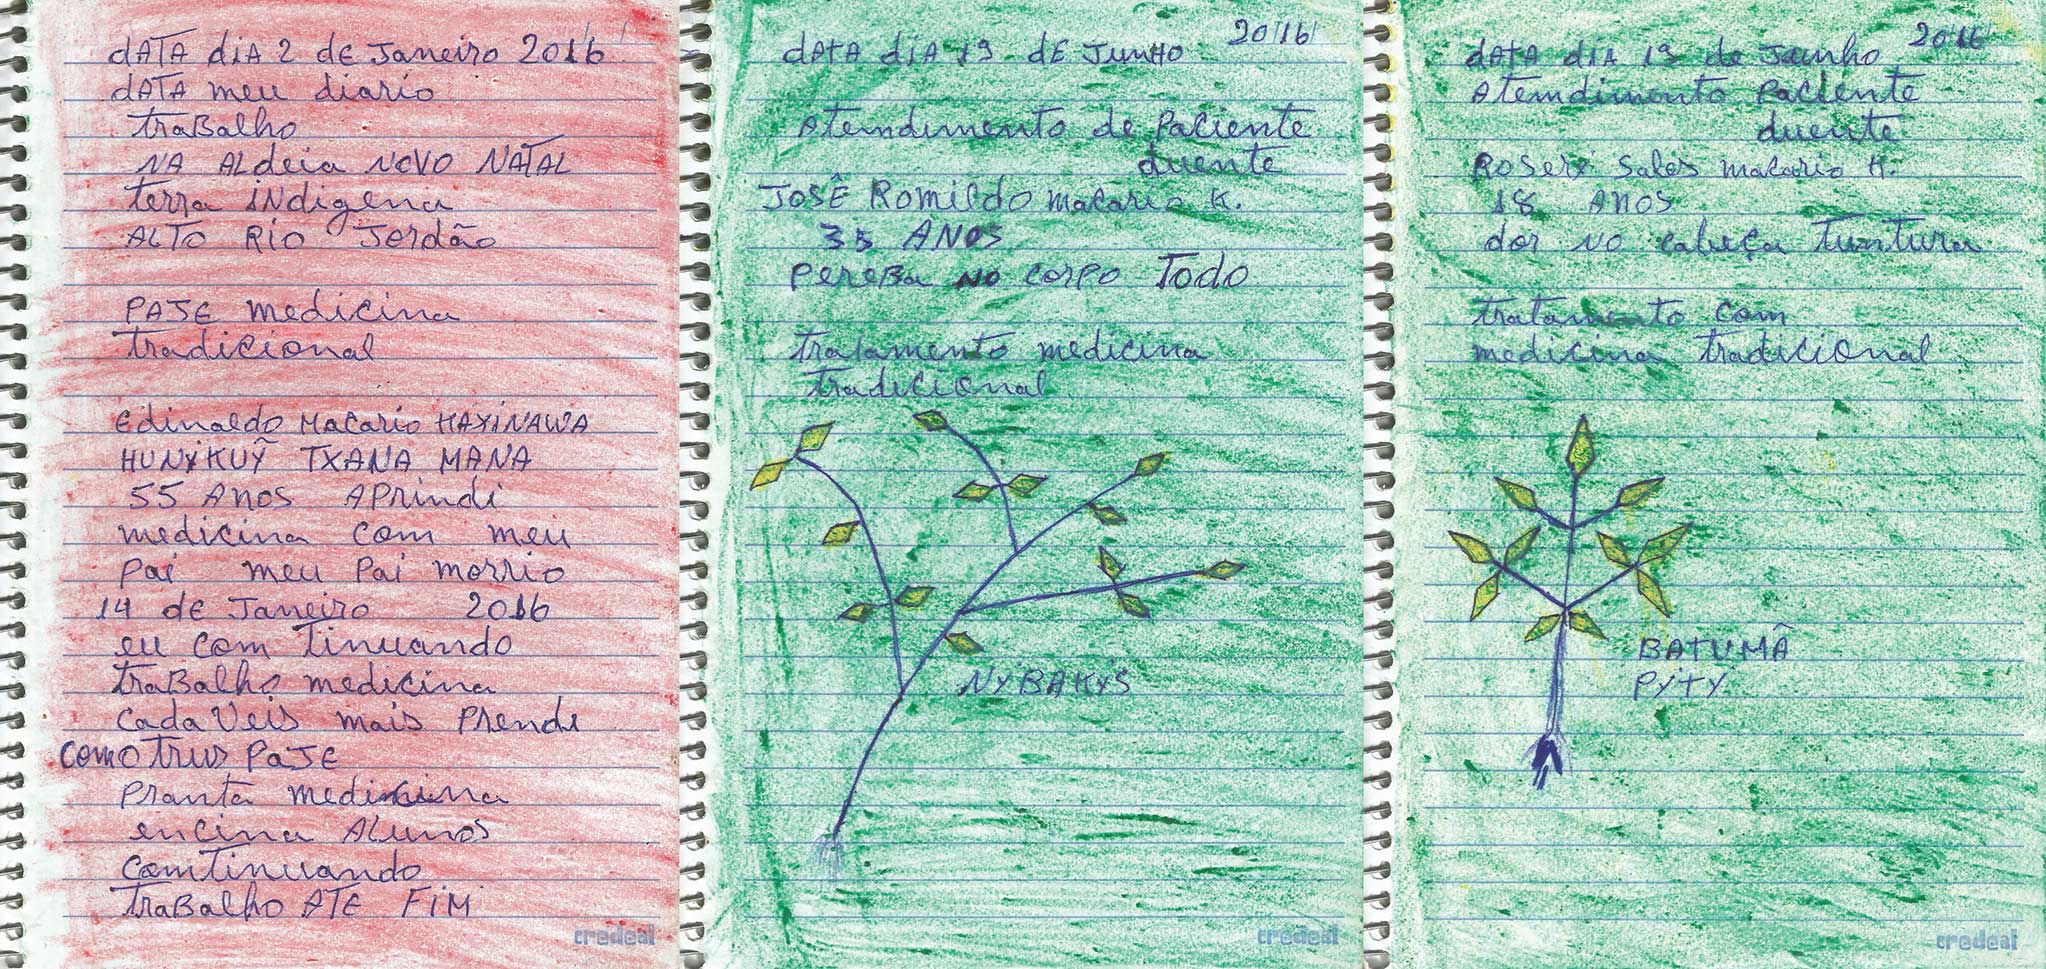 dATA dia 2 de Janeiro 2016
dATA meu diario
traBalho
NA ALdeia NOVO NATAL
terra iNdigena
ALTO RIO Jordão
PAJE medicina
tradicional
Edinaldo Macario HAXINAWA
HUNYKUỸ TXANA MANA
55 ANOS APrindi
medicina com meu
Pai meu Pai morrio
14 de Janeiro 2016
eu com Tinuando
TraBalho medicina
cada Veis mais Prende
com OTrus PAJE
Pranta medicina
encina ALunos
comTinuando
TraBalho ATE FIM
credeal
dATA dIA 19 DE JUNHO 2016
Atemdimento de Paciente
duente
JOSÊ Romildo macario K.
35 ANOS
PereBa NO corpo Todo
Tratamento medicina
tradicional
NYBAKYS
credeal
dATA dIA 19 de Junho 2016
Atemdimento Paciente
duente
Roseri Sales macario K.
18 ANOS
dor NO cabeça Tuntura
tratamento com
medicina tradicional
BATUMÃ
PYTY
credeal